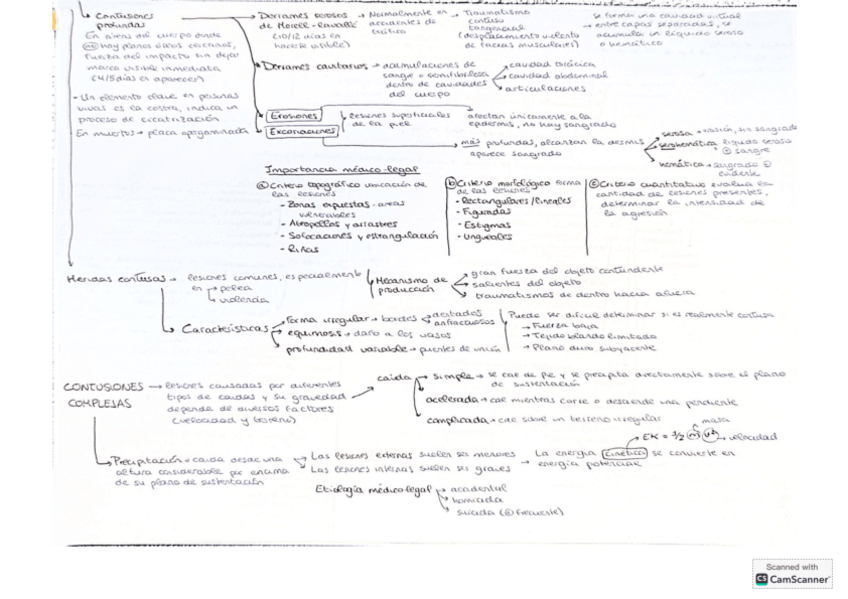 Contusiones profundas → Derrames serosos de Morell-Lavallé (10/12 días en hacerse visible) → Normalmente en accidentes de tráfico → Traumatismo contuso tangencial (desplazamiento violento de fascias musculares) → se forma una cavidad virtual entre capas separadas, se acumula un líquido seroso o hemático
En áreas del cuerpo donde no hay planos óseos cercanos, fuerza del impacto sin dejar marca visible inmediata (4/5 días en aparecer)
Derrames cavitarios → acumulaciones de sangre o dentro de cavidades del cuerpo
cavidad torácica
cavidad abdominal
articulaciones
- Un elemento clave en personas vivas es la costra, indica un proceso de cicatrización
En muertos → placa apergaminada
Erosiones
Excoriaciones
lesiones superficiales de la piel
afectan únicamente a la epidermis, no hay sangrado
más profundas, alcanzan la dermis aparece sangrado
serosa → sin sangrado
serohemática líquido seroso ⊕ sangre
hemática → sangrado evidente
Importancia médico-legal
a) Criterio topográfico ubicación de las lesiones
- Zonas expuestas - áreas vulnerables
- Atropellos y arrastres
- Sofocaciones y estrangulación
- Riñas
b) Criterio morfológico forma de las lesiones
- Rectangulares/lineales
- Figuradas
- Estigmas
- Ungueales
c) Criterio cuantitativo evalúa la cantidad de lesiones presentes, determinar la intensidad de la agresión
Heridas contusas → lesiones comunes, especialmente en
pelea
violencia
Mecanismo de producción
gran fuerza del objeto contundente
salientes del objeto
traumatismos de dentro hacia afuera
Características
forma irregular → bordes
dentados
anfractuosos
equimosis → daño a los vasos
profundidad variable → puentes de unión
Puede ser difícil determinar si es realmente contusa
→ Fuerza baja
→ Tejido blando limitado
→ Plano duro subyacente
CONTUSIONES COMPLEJAS → lesiones causadas por diferentes tipos de caídas y su gravedad depende de diversos factores (velocidad y terreno)
caída
simple → se cae de pie y se precipita directamente sobre el plano de sustentación
acelerada → cae mientras corre o desciende una pendiente
complicada → cae sobre un terreno irregular
Precipitación → caída desde una altura considerable por encima de su plano de sustentación
Las lesiones externas suelen ser menores
Las lesiones internas suelen ser graves
→ La energía cinética se convierte en energía potencial
EK = 1/2 m v²
masa
velocidad
Etiología médico-legal
accidental
homicida
suicida (⊕ frecuente)
Scanned with
CS CamScanner